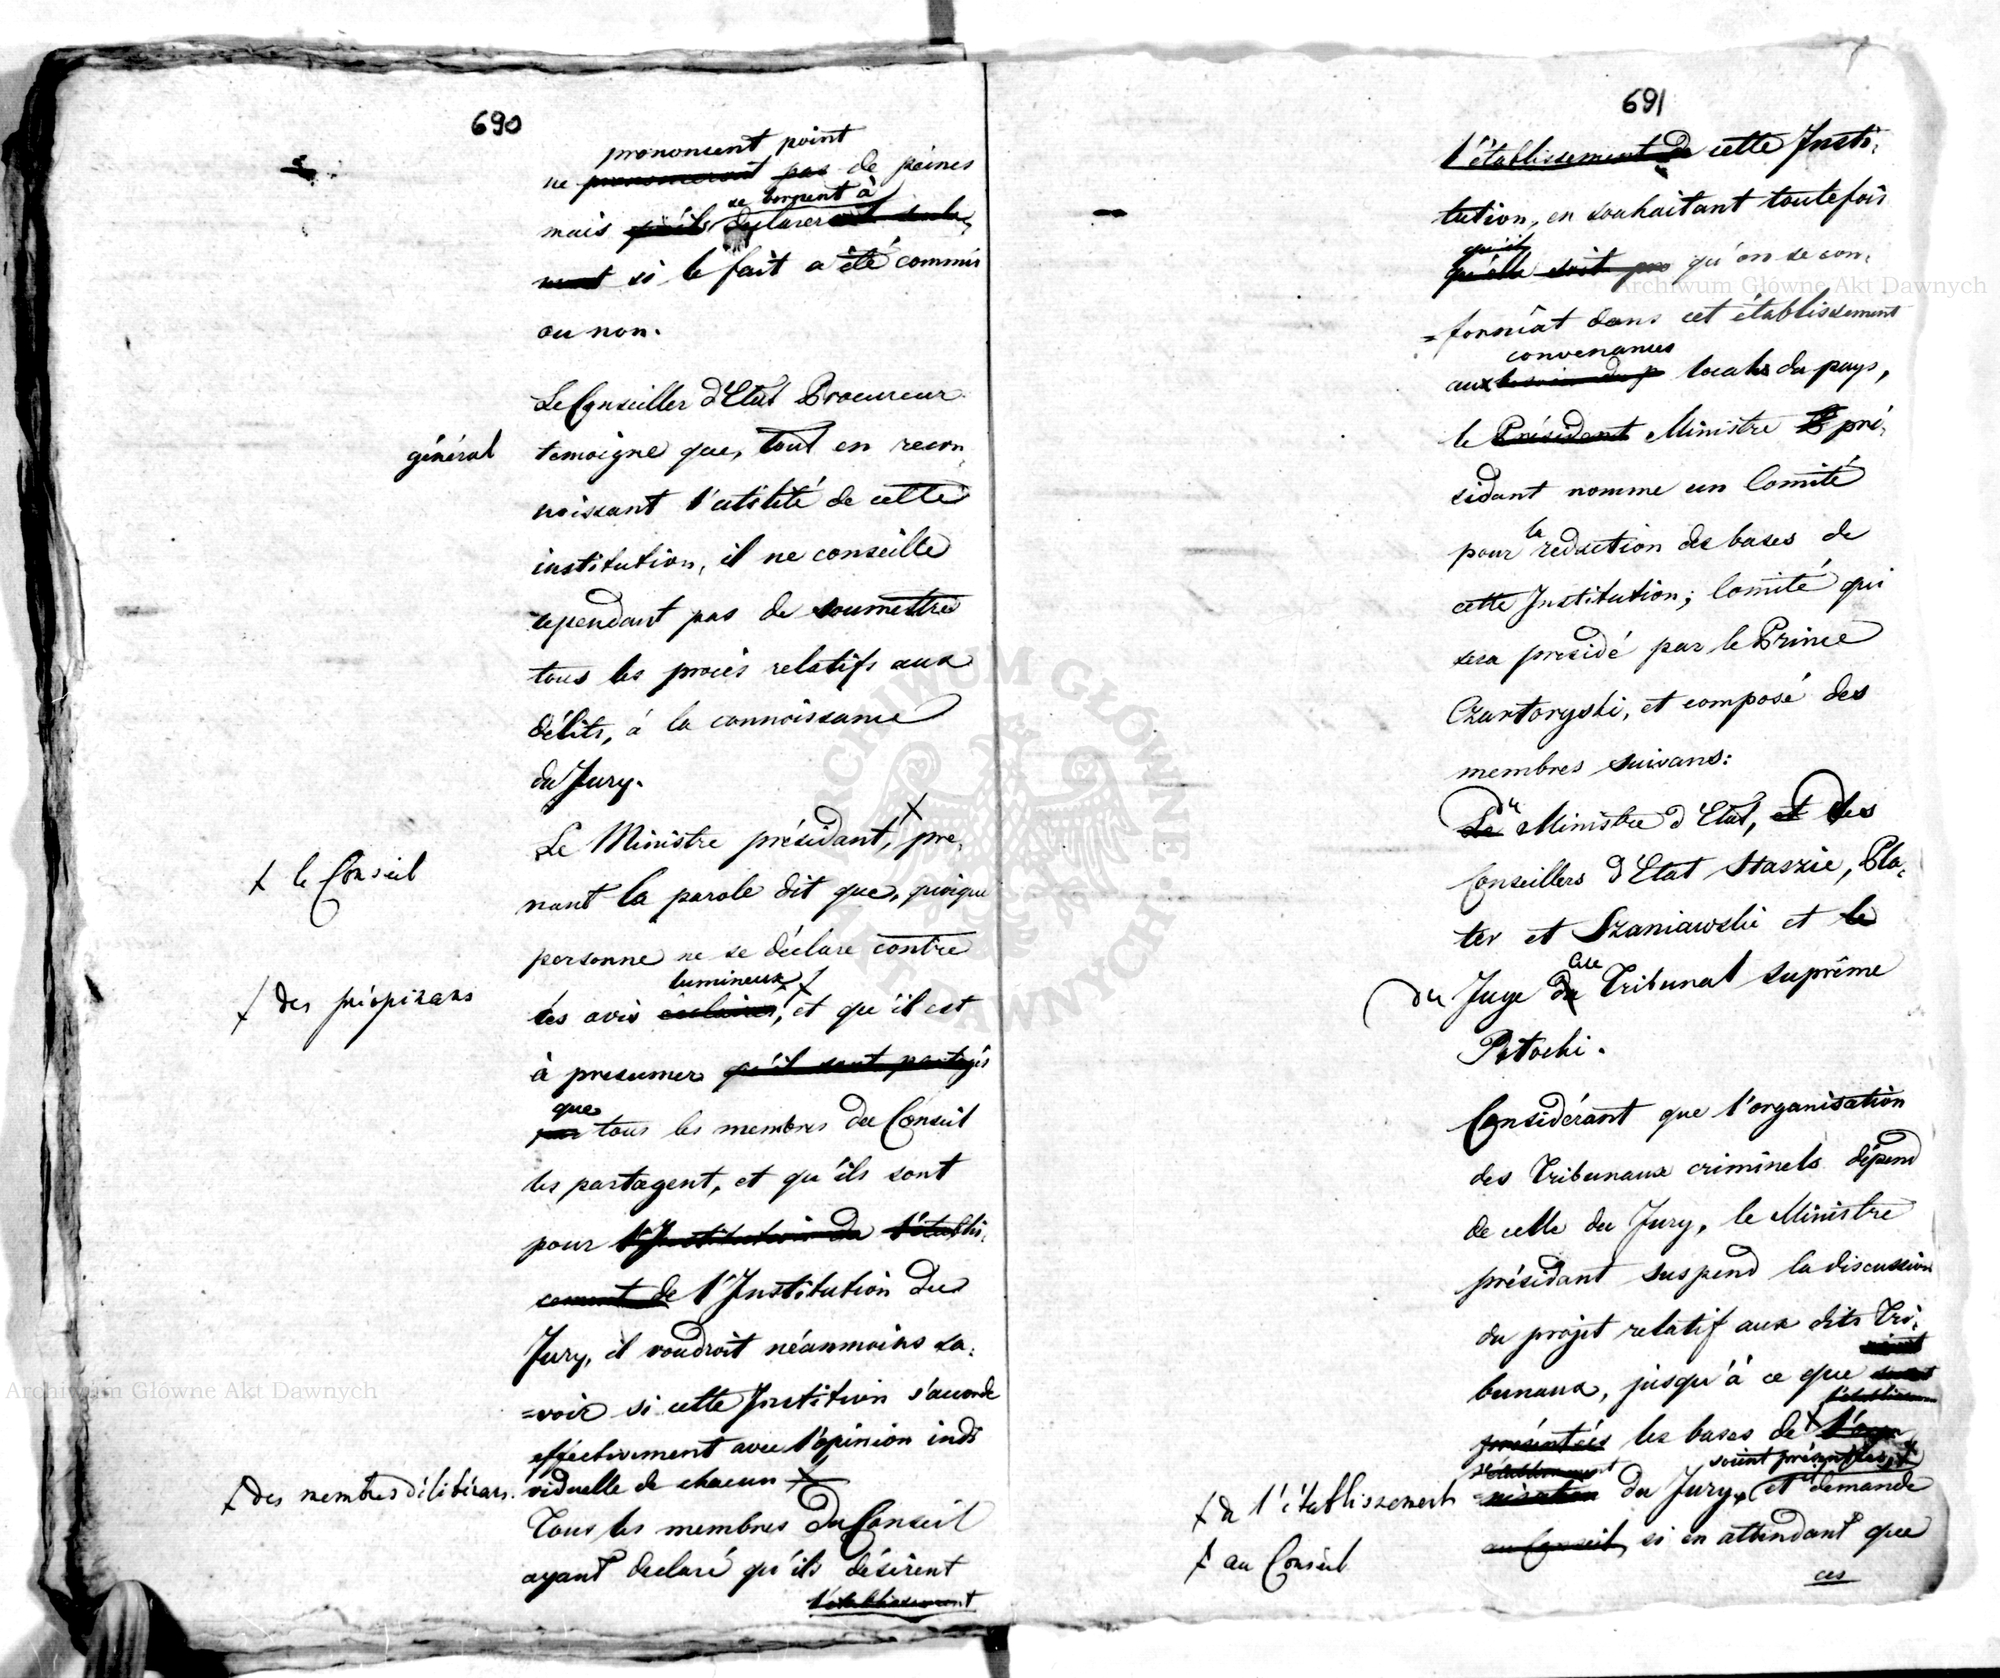 690
prononcent point
ne prononceront pas de peines
se bornent à
mais qu'ils declareront seule,
ment si le fait a été commis
ou non.
Le Conseiller d'Etat Procureur
général temoigne que, tout en recon,
noissant l'utilité de cette
institution, il ne conseille
cependant pas de soumettre
tous les procès relatifs aux
délits, à la connoissance
du Jury.
Le Ministre présidant, pre,
+ le Conseil
nant la parole dit que, quoique
personne ne se déclare contre
lumineux +
+ des préopinans
les avis éclairés, et qu'il est
à presumer qu'il sont partagés
que
par tous les membres du Conseil
les partagent, et qu'ils sont
pour l'Institution du l'établis,
cement de l'Institution du
Jury, il voudroit néanmoins sa,
=voir si cette Institution s'accorde
effectivement avec l'opinion indi
+ des membres délibérans. viduelle de chacun +
Tous les membres du Conseil
ayant declaré qu'ils désirent
l'établissement
691
l'établissement de cette Insti,
tution, en souhaitant toutefois
qu'il
qu'elle soit pro qu'on se con,
=formât dans cet établissement
convenances
aux besoins du p locales du pays,
le Président Ministre pré,
sidant nomme un Comité
la
pour redaction des bases de
cette Institution; Comité qui
sera presidé par le Prince
Czartoryski, et composé des
membres suivans:
du
Le Ministre d'Etat, et des
Conseillers d'Etat Staszic, Pla,
ter et Szaniawski et le
au
du Juge du Tribunal suprême
Potocki.
Considérant que l'organisation
des Tribunaux criminels dépend
de celle du Jury, le Ministre
présidant suspend la discussion
du projet relatif aux dits Tri,
bunaux, jusqu'à ce que soient
présentées les bases de + l'orga
soient présentées +
+ de l'établissement =nisation du Jury, et demande
+ au Conseil
au Conseil, si en attendant que
ces
Archiwum Główne Akt Dawnych
Archiwum Główne Akt Dawnych
ARCHIWUM GŁÓWNE AKT DAWNYCH